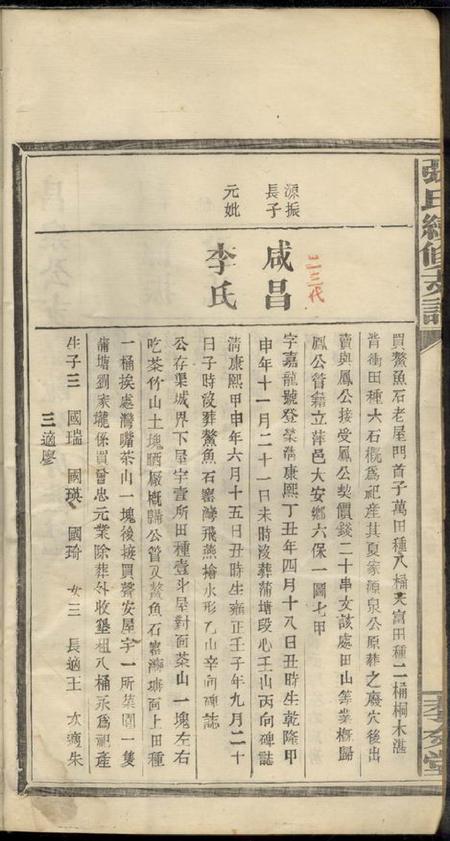 張氏續修支譜
孝友堂
源振
長子
元妣
咸昌
李氏
二三代
買鰲魚石老屋門首子萬田種八桶大富田種二桶桐木湛
背衝田種大石概為祀産其夏家源泉公原葬之廢穴後出
賣與鳳公接受鳳公契價錢二十串文該處田山等業概歸
鳳公管籍立萍邑大安鄉六保一圖七甲
字嘉龍號登榮清康熙丁丑年四月十八日丑時生乾隆甲
申年十一月二十一日未時沒葬蒲塘段心壬山丙向碑誌
清康熙甲申年六月十五日丑時生雍正壬子年九月二十
日子時沒葬鰲魚石窰灣飛燕檐水形乙山辛向碑誌
公存渠城界下屋宇壹所田種壹斗屋對面茶山一塊左右
吃茶竹山土塊晒厰概歸公管又鰲魚石窰灣塘面上田種
一桶挨處灣嘴茶山一塊後接買聲安屋宇一所菜園一隻
蒲塘劉家壠係買曾思元業除葬外收墾租八桶永為祀產
生子三 國瑞 國瑛 國琦 女三 長適王 次適朱
三適廖